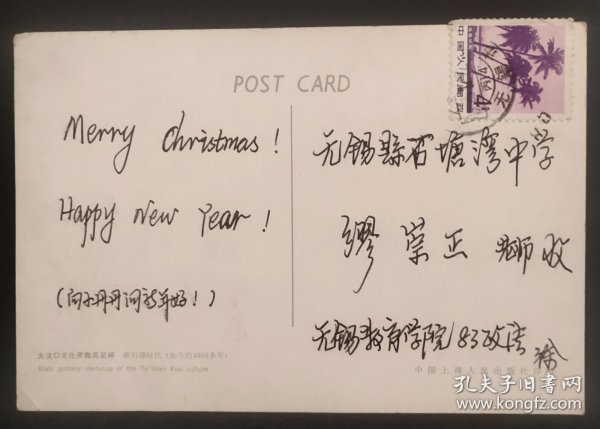 POST CARD
Merry Christmas!
Happy New Year!
(向小丹丹问新年好!)
大汶口文化黑陶高足杯 新石器时代(距今约4000多年)
Black pottery stemcup of the Ta Wen Kou culture
中国人民邮政
无锡县石塘湾中学
缪崇正 老师收
无锡教育学院83政法 徐
中国上海人民出版社
孔夫子旧书网
www.kongfz.com